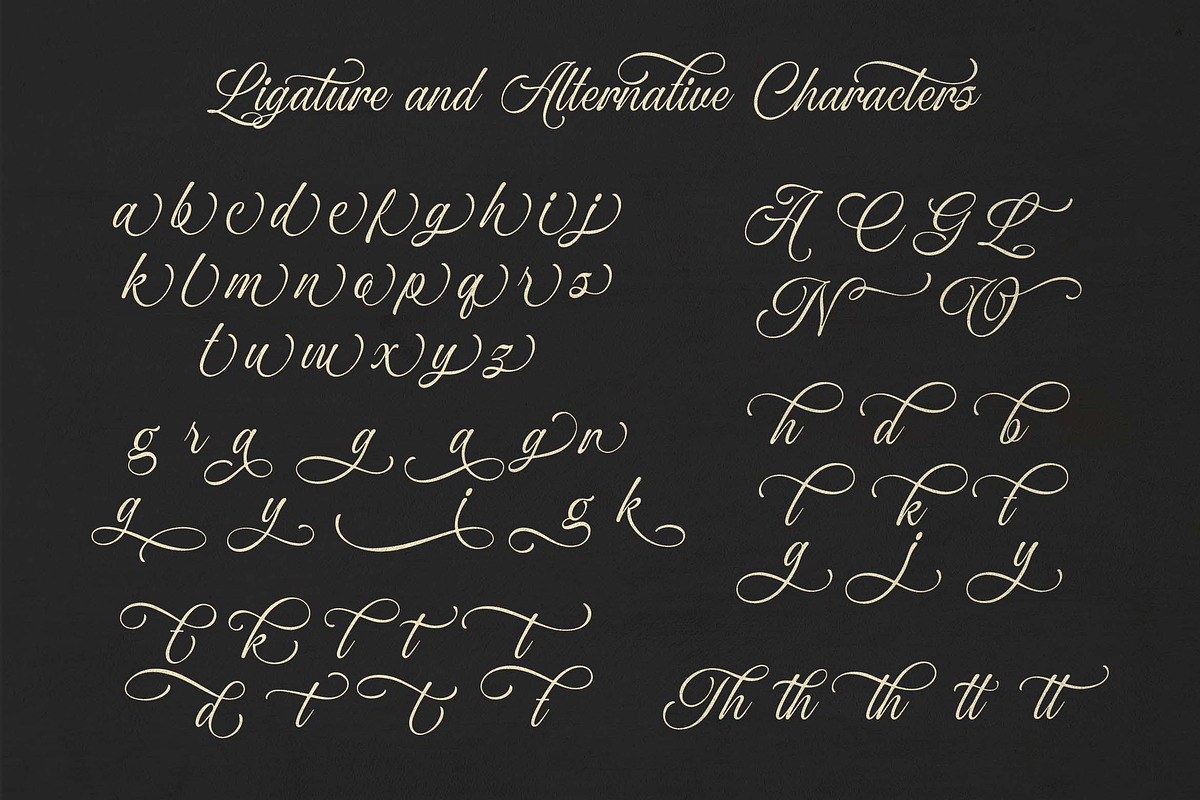 Ligature and Alternative Characters
a b c d e f g h i j
k l m n o p q r s
t u w x y z
g r a g a g n
g y i g k
t k l t t
d t t t
A C G L
N O
h d b
l k t
g j y
Th th th tt tt